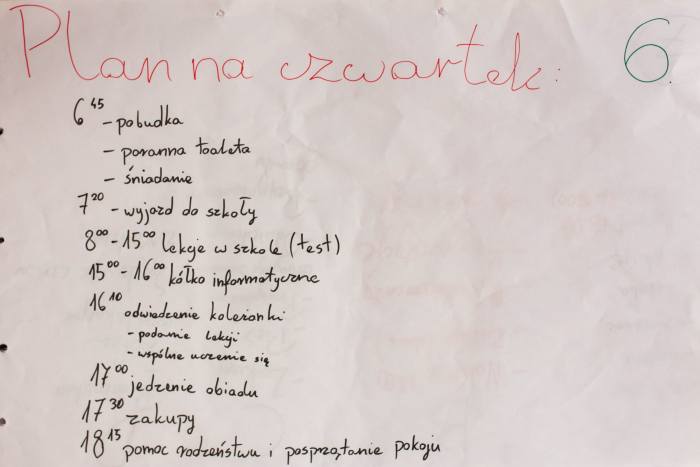 Plan na czwartek: 6.
6⁴⁵ - pobudka
- poranna toaleta
- śniadanie
7²⁰ - wyjazd do szkoły
8⁰⁰ - 15⁰⁰ lekcje w szkole (test)
15⁰⁰ - 16⁰⁰ kółko informatyczne
16¹⁰ odwiedzenie koleżanki
- podanie lekcji
- wspólne uczenie się
17⁰⁰ jedzenie obiadu
17³⁰ zakupy
18¹⁵ pomoc rodzeństwu i posprzątanie pokoju